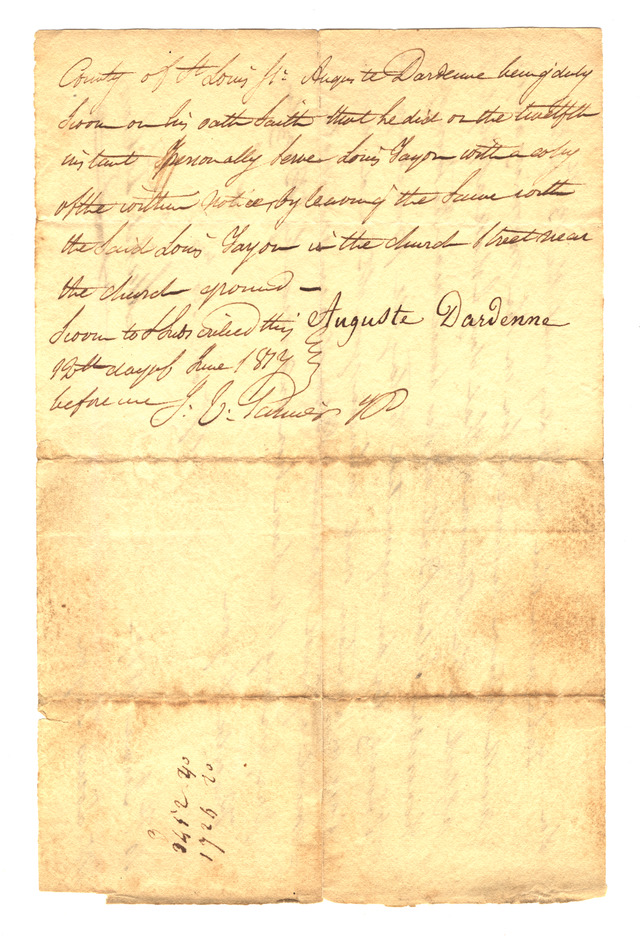 County of St Louis Ss. Auguste Dardenne being duly
Sworn on his oath Saith that he did on the twelfth
instant Personally Serve Louis Tayon with a copy
of the within Notice, by leaving the Same with
the Said Louis Tayon in the church Street near
the church ground —
Sworn to & Subscribed this
Auguste Dardenne
12th day of June
before me J. V.
3452 40
1726 20